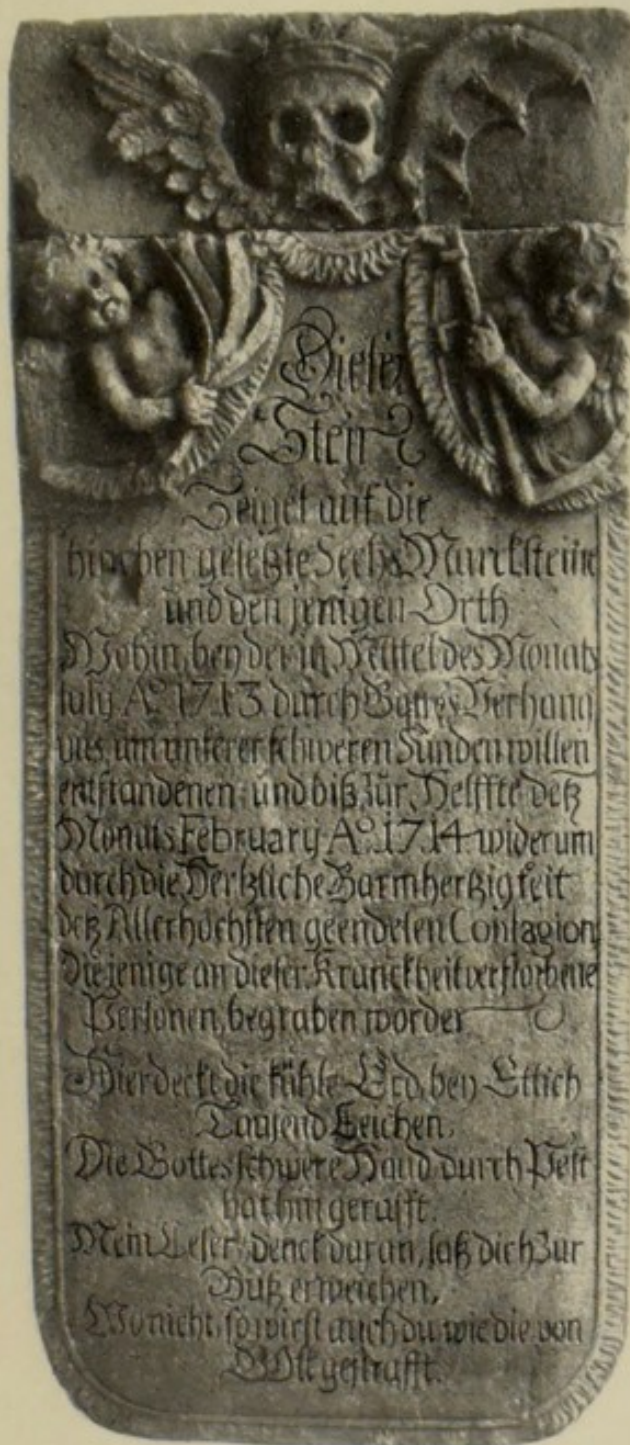 Dieser
Stein
Zeiget auf die
hierneben gesetzte Sechs Marcksteine
und den jenigen Orth
Wohin, bey der in Mittel des Monats
July Aº. 1713 durch Gottes Verhäng
nus, um unserer schweren Sünden willen
entstandenen, und biß zur Helffte deß
Monats February Aº. 1714 widerum
durch die Hertzliche Barmhertzigkeit
deß Allerhöchsten geendeten Contagion,
Die jenige an dieser Kranckheit verstorbene
Persohnen, begraben worden
Hier deckt die kühle Erd, bey Ettlich
Tausend Leichen,
Die Gottes schwere Hand durch Pest
hat hingerafft.
Mein Leser, denck daran, laß dich zur
Buß erweichen,
Wo nicht, so wirst auch du, wie die von
GOtt gestrafft.